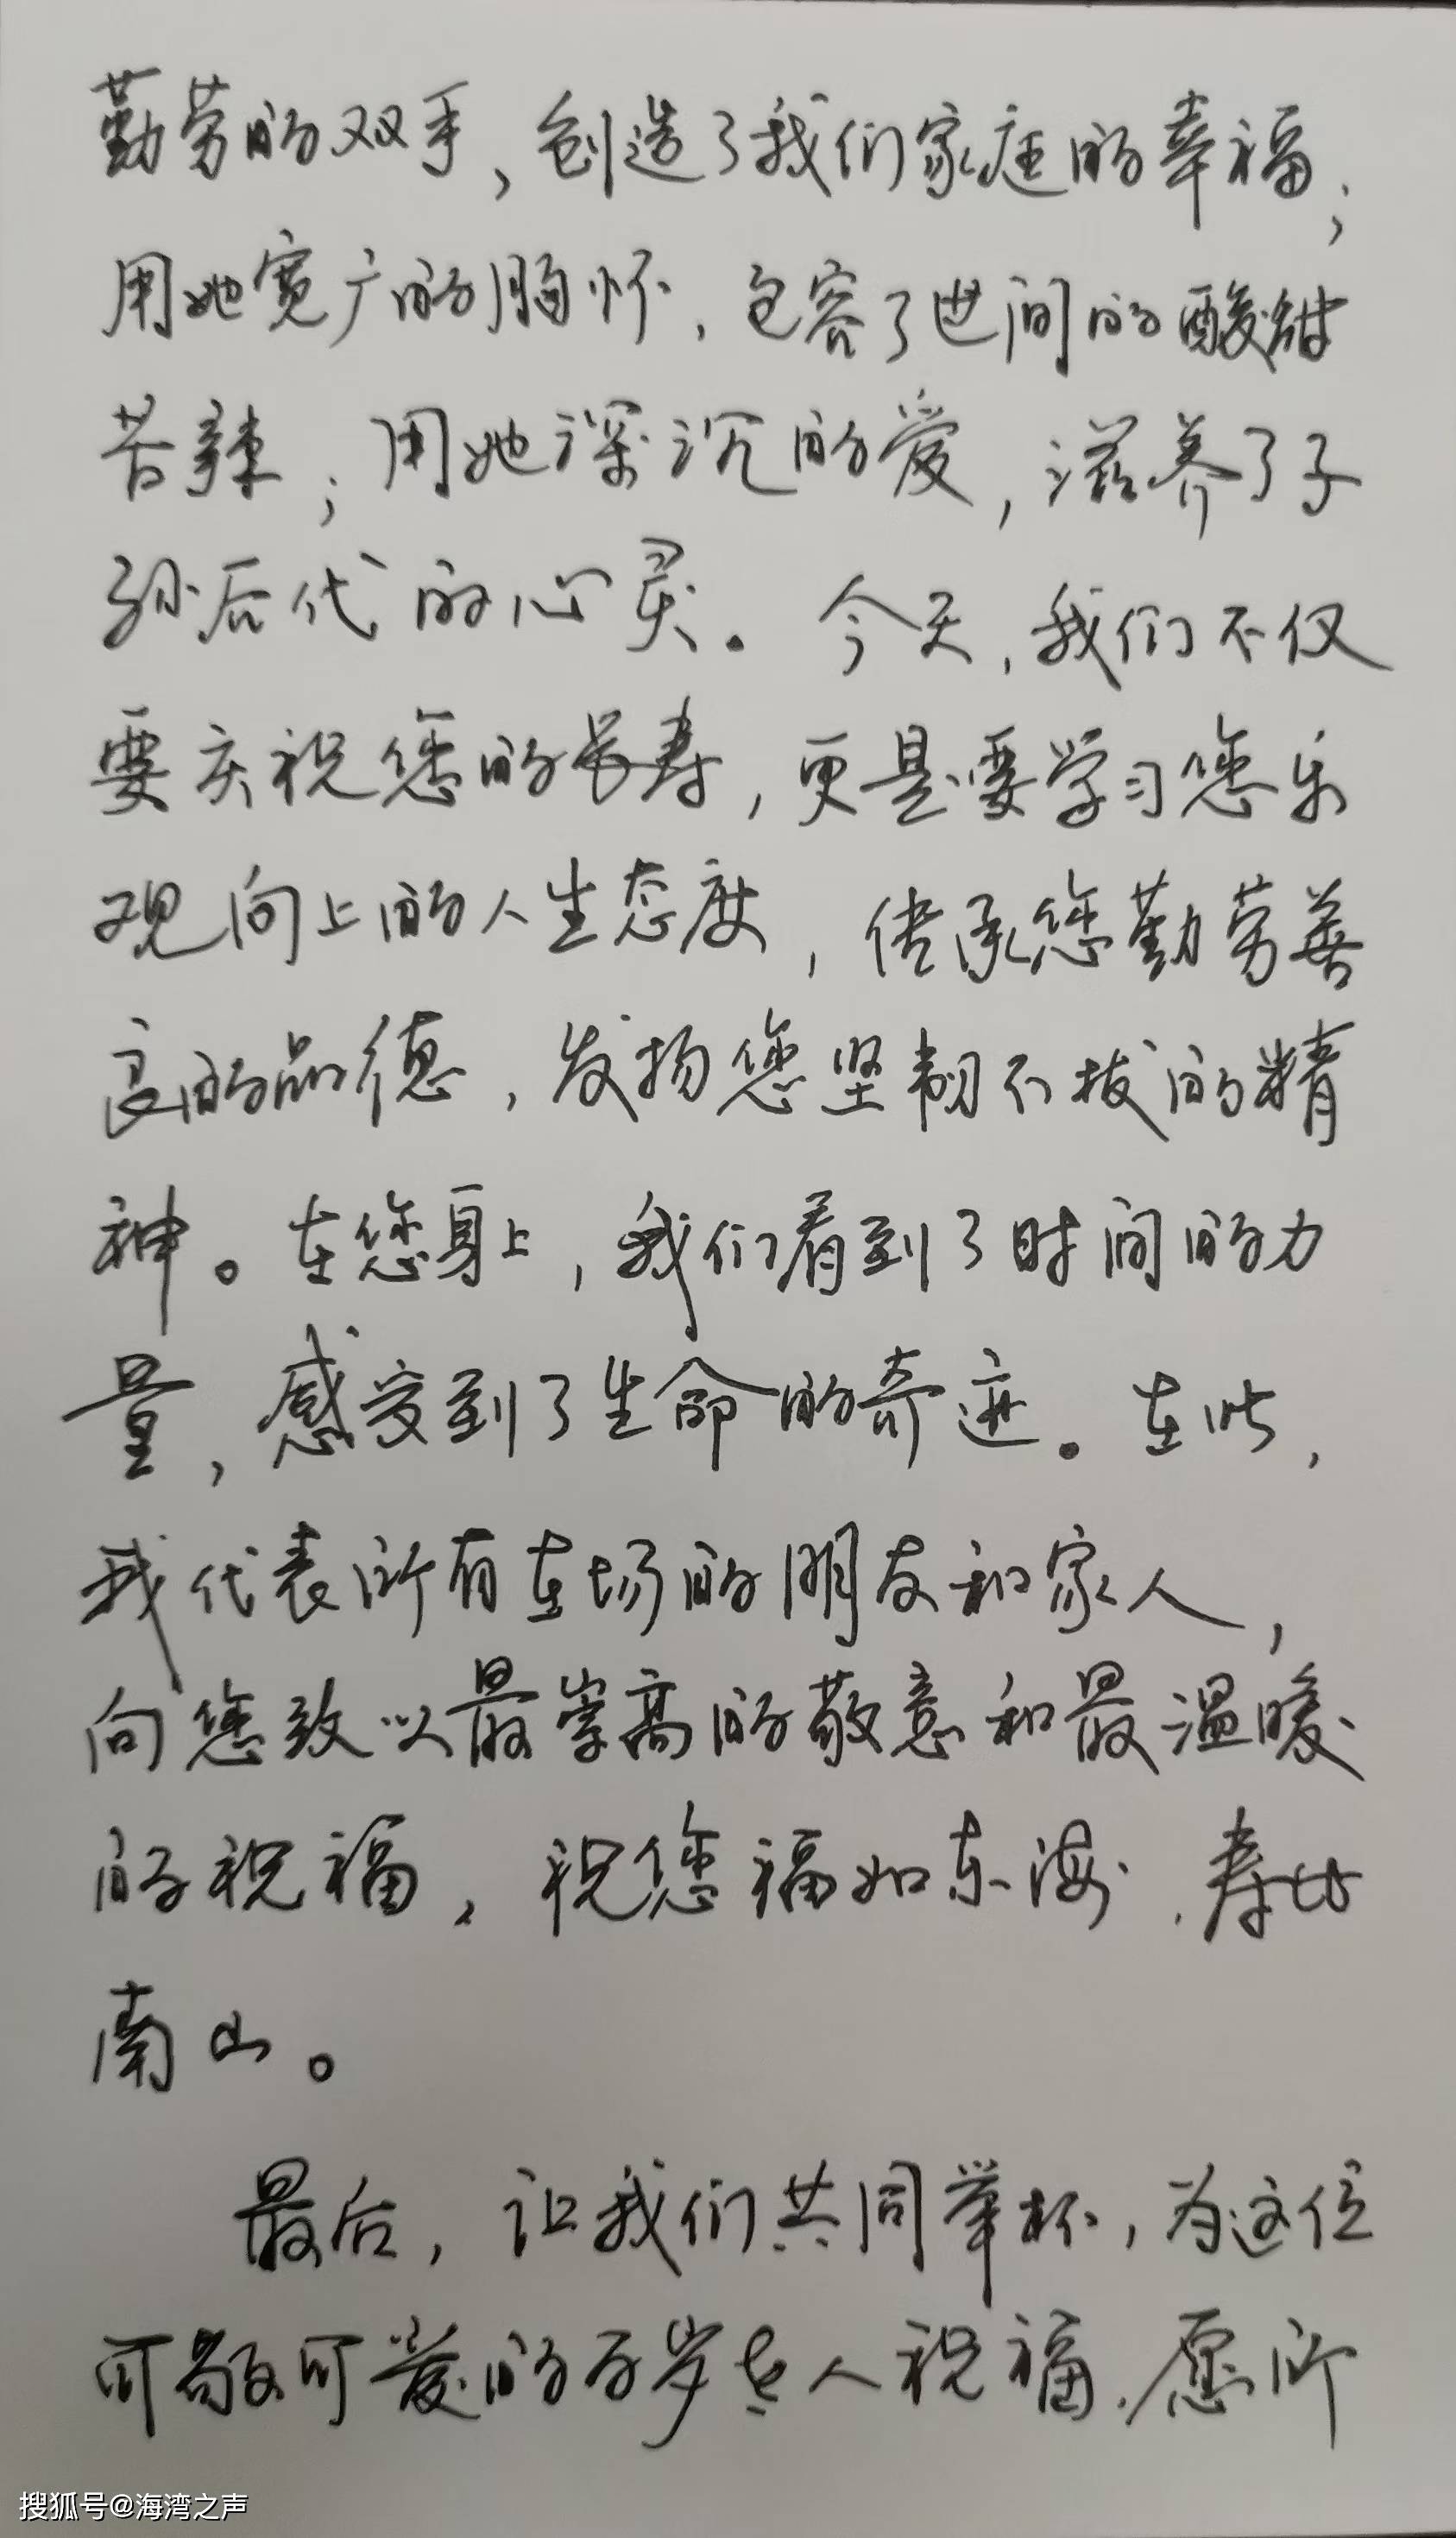 勤劳的双手，创造了我们家庭的幸福；
用她宽广的胸怀，包容了世间的酸甜
苦辣；用她深沉的爱，滋养了子
孙后代的心灵。今天，我们不仅
要庆祝您的长寿，更是要学习您乐
观向上的人生态度，传承您勤劳善
良的品德，发扬您坚韧不拔的精
神。在您身上，我们看到了时间的力
量，感受到了生命的奇迹。在此，
我代表所有在场的朋友和家人，
向您致以最崇高的敬意和最温暖
的祝福，祝您福如东海，寿比
南山。
最后，让我们共同举杯，为这位
可敬可爱的百岁老人祝福，愿所
搜狐号@海湾之声